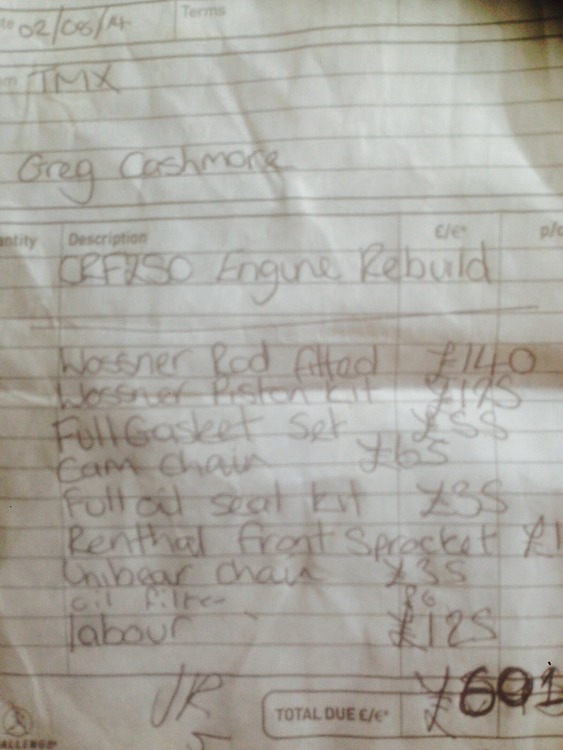 te 02/06/14 Terms
om JTMX
Greg Cashmore
antity Description £/€* p/c
CRF250 Engine Rebuild
Wossner Rod fitted £140
Wossner Piston Kit £125
Full Gasket Set £55
Cam Chain £65
Full oil seal kit £35
Renthal front Sprocket £1
Unibear chain £35
oil filter £6
labour £125
JR
TOTAL DUE £/€* £601
ALLENGE